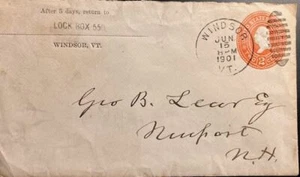 After 5 days, return to
LOCK BOX 55
WINDSOR, VT.
WINDSOR
JUN
15
PM
1901
VT.
2
Geo B. Lear Esq
Newport
N.H.